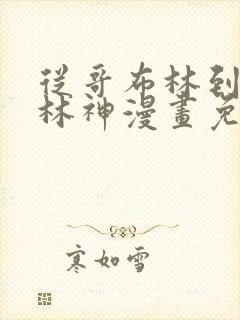 從哥布林到
林神漫畫免
寒如雪